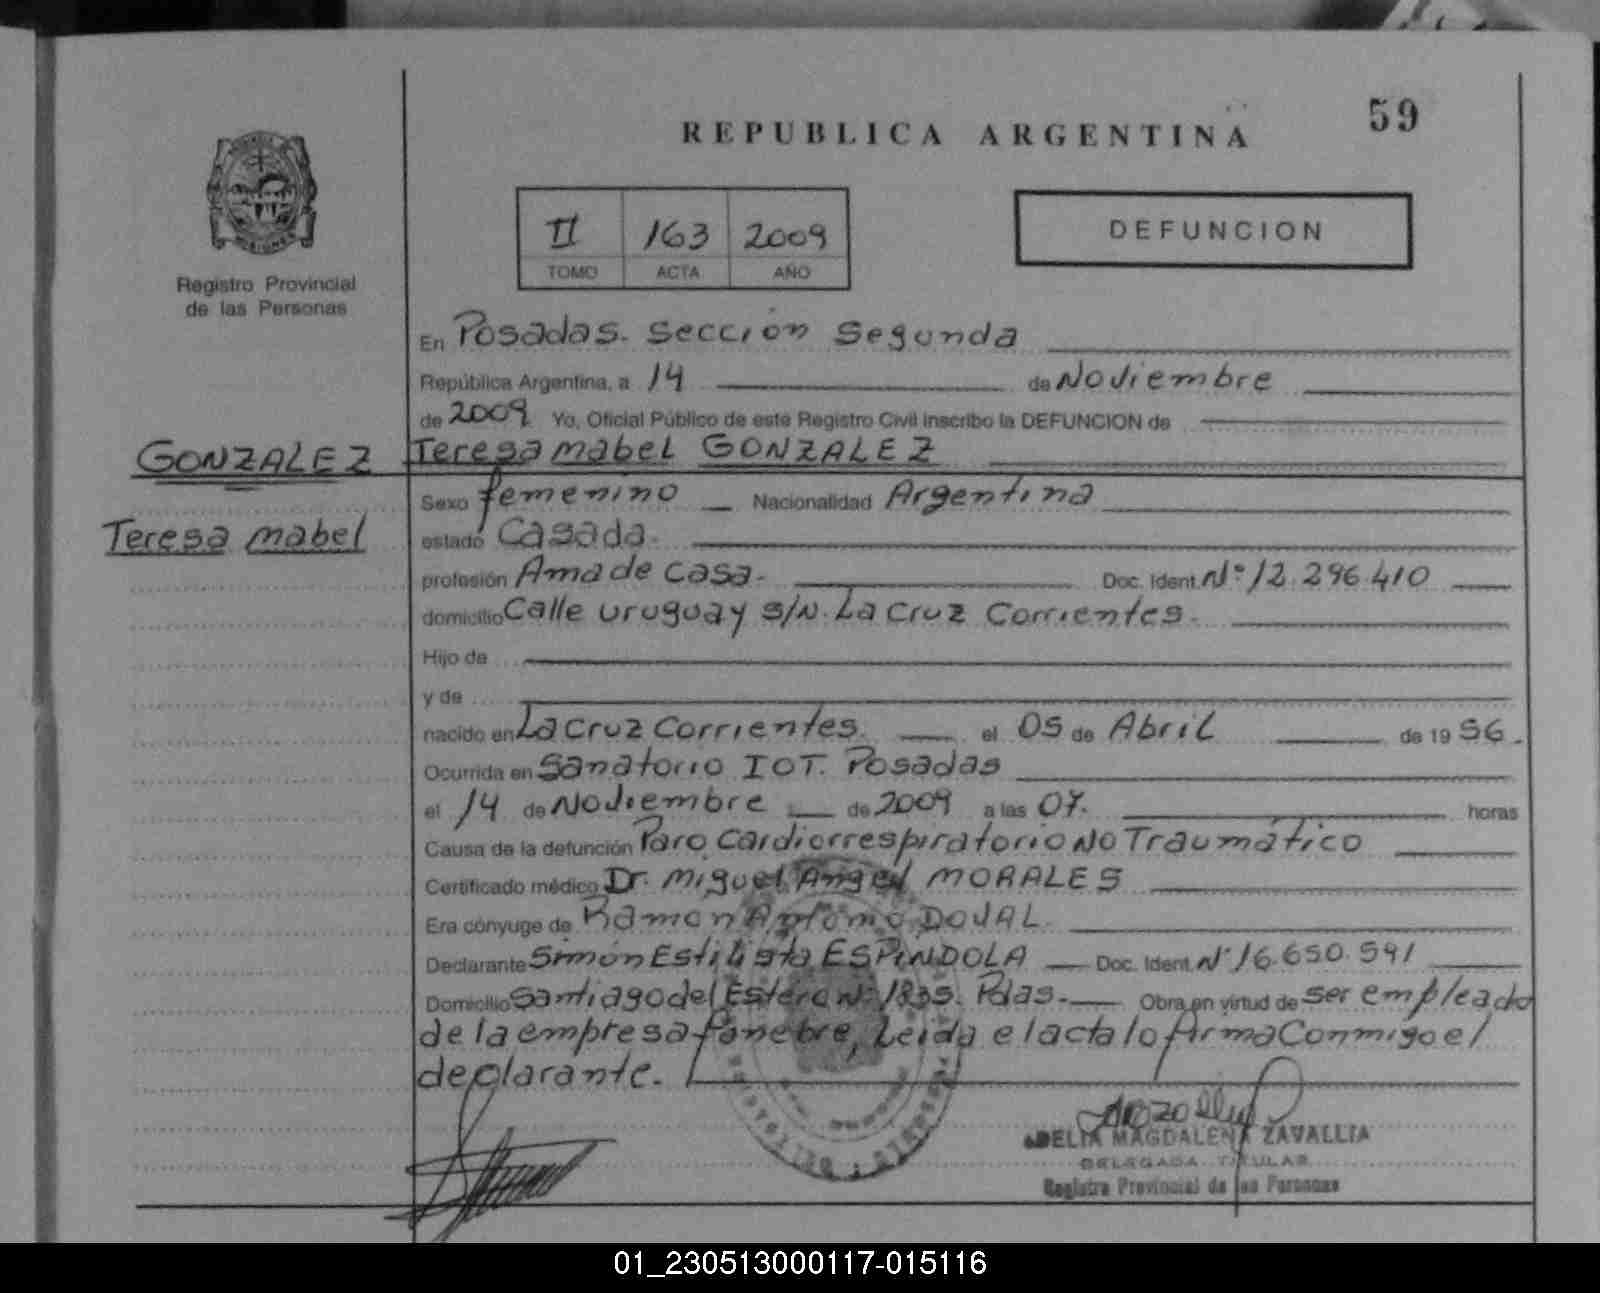 59
REPUBLICA ARGENTINA
II 163 2009
TOMO ACTA AÑO
DEFUNCION
Registro Provincial
de las Personas
En Posadas. Sección Segunda
República Argentina, a 14 de Noviembre
de 2009 Yo, Oficial Público de este Registro Civil inscribo la DEFUNCION de
GONZALEZ
Teresa Mabel
Teresa Mabel GONZALEZ
Sexo femenino Nacionalidad Argentina
estado Casada.
profesión Ama de casa. Doc. Ident. Nº 12.296.410
domicilio Calle Uruguay s/N. La Cruz Corrientes.
Hijo de
y de
nacido en La Cruz Corrientes. el 05 de Abril de 1956.
Ocurrida en Sanatorio IOT. Posadas
el 14 de Noviembre de 2009 a las 07. horas
Causa de la defunción Paro Cardiorrespiratorio No Traumático
Certificado médico Dr. Miguel Angel MORALES
Era cónyuge de Ramon Antonio DOVAL.
Declarante Simón Estilista ESPINDOLA Doc. Ident. Nº 16.650.591
Domicilio Santiago del Estero Nº 1835. Pdas. Obra en virtud de ser empleado
de la empresa fúnebre, Leida el acta lo firma Conmigo el
declarante.
DELIA MAGDALENA ZAVALLIA
DELEGADA TITULAR
Registro Provincial de las Personas
01_230513000117-015116